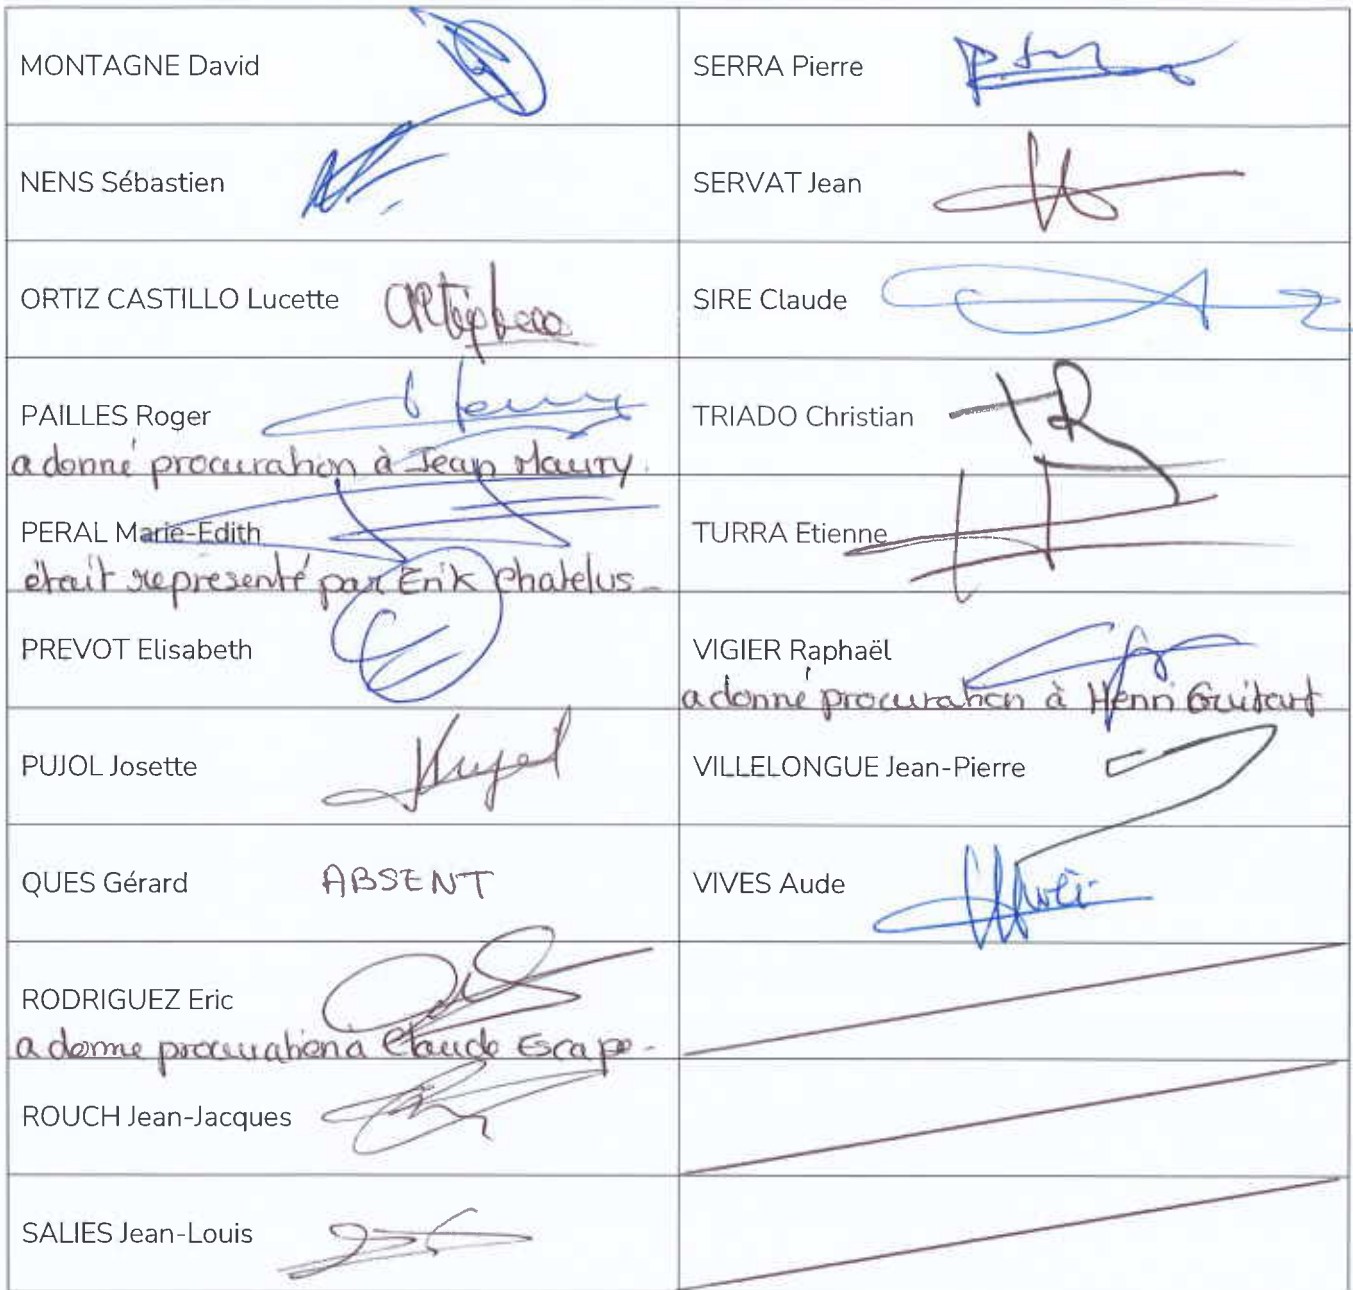 MONTAGNE David
SERRA Pierre
NENS Sébastien
SERVAT Jean
ORTIZ CASTILLO Lucette
SIRE Claude
PAILLES Roger
a donné procuration à Jean Maury.
TRIADO Christian
PERAL Marie-Edith
était représenté par Erik Chatelus
TURRA Etienne
PREVOT Elisabeth
VIGIER Raphaël
a donné procuration à Henri Guitart
PUJOL Josette
VILLELONGUE Jean-Pierre
QUES Gérard ABSENT
VIVES Aude
RODRIGUEZ Eric
a donne procuration a Claude Escape.
ROUCH Jean-Jacques
SALIES Jean-Louis